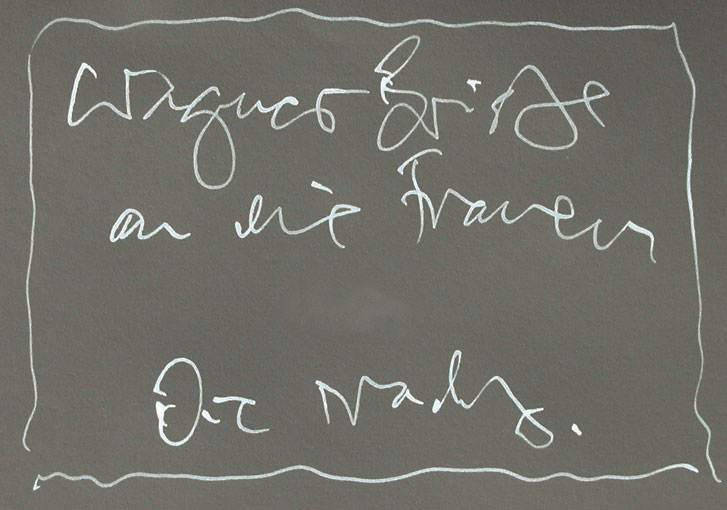 Wagners Briefe
an die Frauen
Die Nachz.